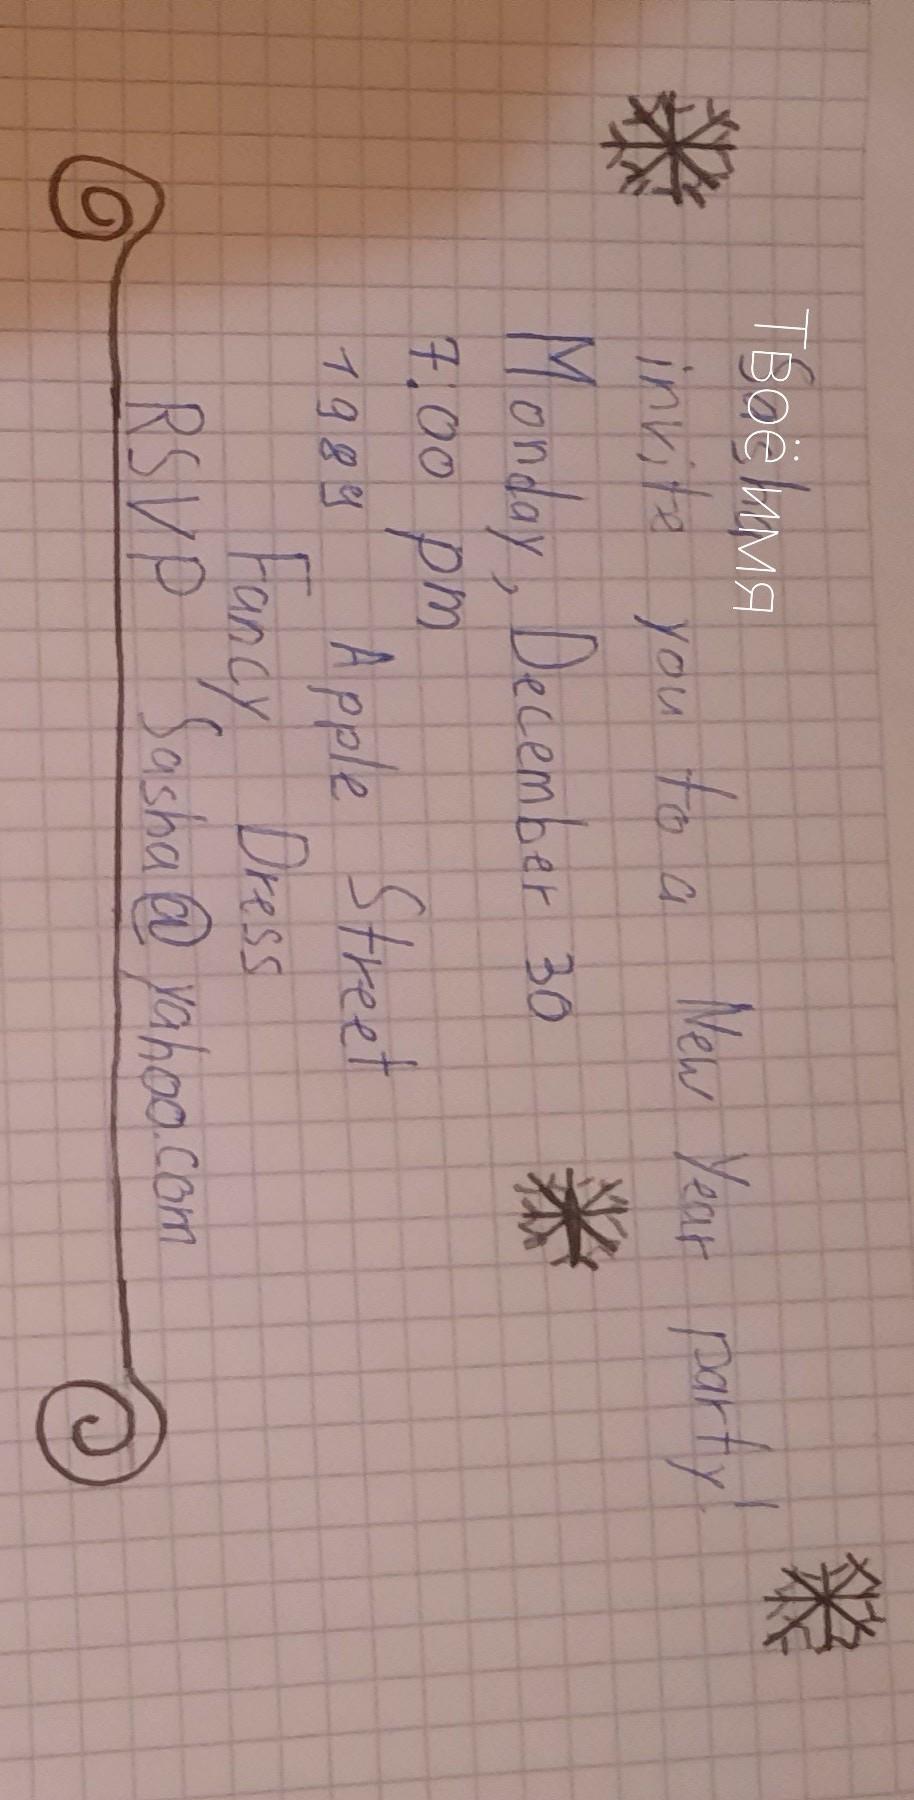 Твоё имя
invite you to a New Year party!
Monday, December 30
7:00 pm
1989 Apple Street
Fancy Dress
RSVP Sasha@yahoo.com